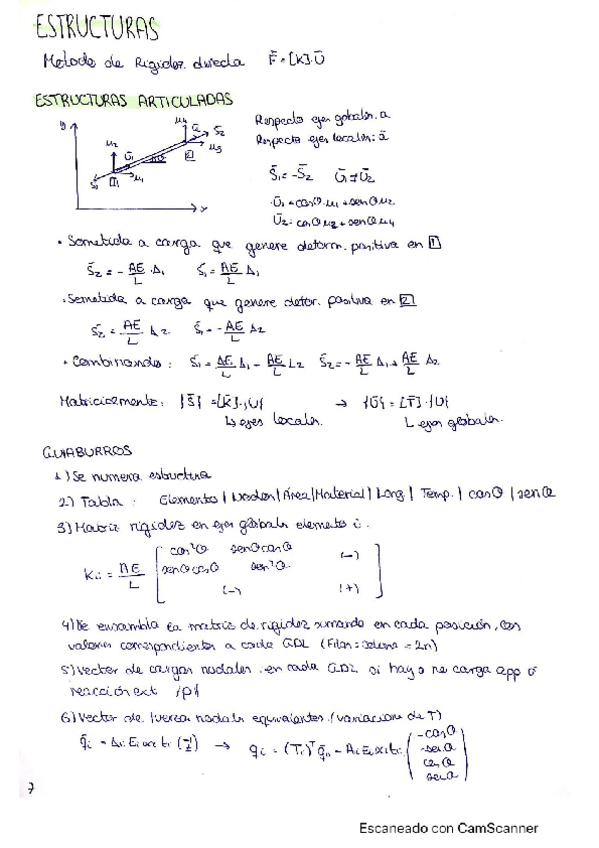 ESTRUCTURAS
Metodo de Rigidez directa F̄ = [K]·Ū
ESTRUCTURAS ARTICULADAS
Respecto ejes globales: a
Respecto ejes locales: ā
y
x
u₁
u₂
u₃
u₄
S̄₁
S̄₂
Ū₁
1
2
S̄₁ = -S̄₂ Ū₁ ≠ Ū₂
·Ū₁ = cosθ·u₁ + senθ u₂
Ū₂ = cosθ u₃ + senθ u₄
· Sometida a carga que genere deform. positiva en 1
S̄₂ = - AE/L · Δ₁ S̄₁ = AE/L Δ₁
· Sometida a carga que genere defor. positiva en 2
S̄₂ = AE/L Δ₂ S̄₁ = - AE/L Δ₂
· Combinando: S̄₁ = AE/L Δ₁ - AE/L Δ₂ S̄₂ = - AE/L Δ₁ + AE/L Δ₂
Matricialmente: {S̄} = [K̄]·{U} → {Ū} = [T]·{U}
↳ ejes locales. ↳ ejes globales.
GUIABURROS
1) Se numera estructura
2) Tabla: Elementos | Nodos | Área | Material | Long | Temp. | cosθ | senθ
3) Matriz rigidez en ejes globales elemento i.
Ki = AE/L [ cos²θ senθcosθ (-)
senθcosθ sen²θ
(-) (+) ]
4) Se ensambla la matriz de rigidez sumando en cada posición, los
valores correspondientes a cada GDL (Filas = Columna = 2n)
5) Vector de cargas nodales en cada GDL si hay o no carga app o
reacción ext {P}
6) Vector de fuerzas nodales equivalentes (variaciones de T)
q̄i = Ai Ei ∝ ti (-1 1) → qi = (Ti)ᵀ q̄i = Ai Ei ∝i ti · ( -cosθ
-senθ
cosθ
senθ )
7
Escaneado con CamScanner